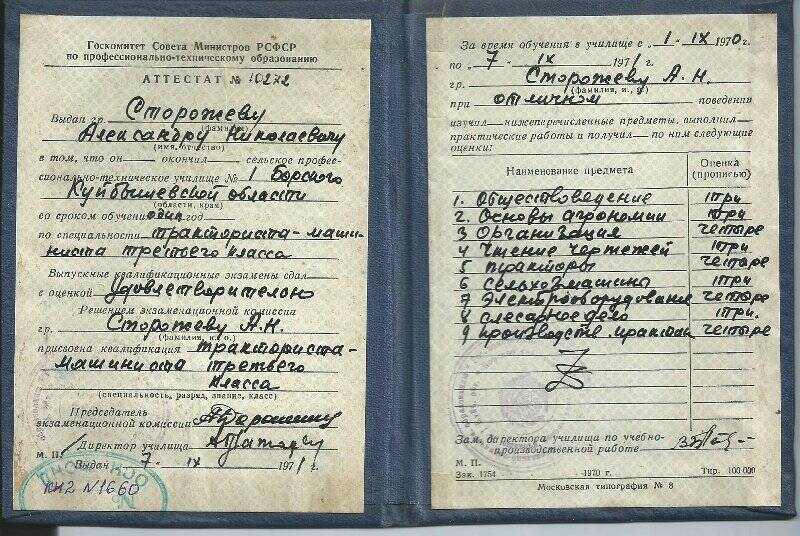 Госкомитет Совета Министров РСФСР
по профессионально-техническому образованию
АТТЕСТАТ № 10272
Выдан гр. Сторожеву
(фамилия)
Александру Николаевичу
(имя, отчество)
в том, что он окончил сельское профес-
сионально-техническое училище № 1 Борского
Куйбышевской области
(области, края)
со сроком обучения один год
по специальности тракториста-маши-
ниста третьего класса
Выпускные квалификационные экзамены сдал
с оценкой Удовлетворительно
Решением экзаменационной комиссии
гр. Сторожеву А.Н.
(фамилия, и. о.)
присвоена квалификация тракториста-
машиниста третьего
класса
(специальность, разряд, звание, класс)
Председатель
экзаменационной комиссии
Директор училища
М. П.
Выдан 7 - IX 1971 г.
КН2 N1660
За время обучения в училище с „ 1 - IX 1970 г.
по „ 7 - IX 1971 г.
гр. Сторожеву А. Н.
(фамилия, и., о.)
при отличном поведении
изучил нижеперечисленные предметы, выполнил
практические работы и получил по ним следующие
оценки:
Наименование предмета Оценка (прописью)
1. Обществоведение три
2. Основы агрономии три
3 Организация четыре
4 Чтение чертежей три
5 тракторы четыре
6 сельхозмашины три
7 Электрооборудование четыре
8 слесарное дело три.
9 производств практик четыре
Зам. директора училища по учебно-
производственной работе
М. П.
Зак. 1754 —1970 г. Тир. 100 000
Московская типография № 8